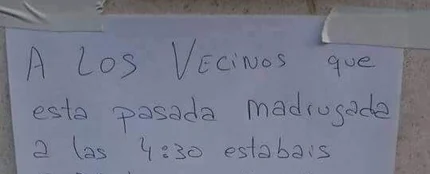 A LOS VECINOS que
esta pasada madrugada
a las 4:30 estabais